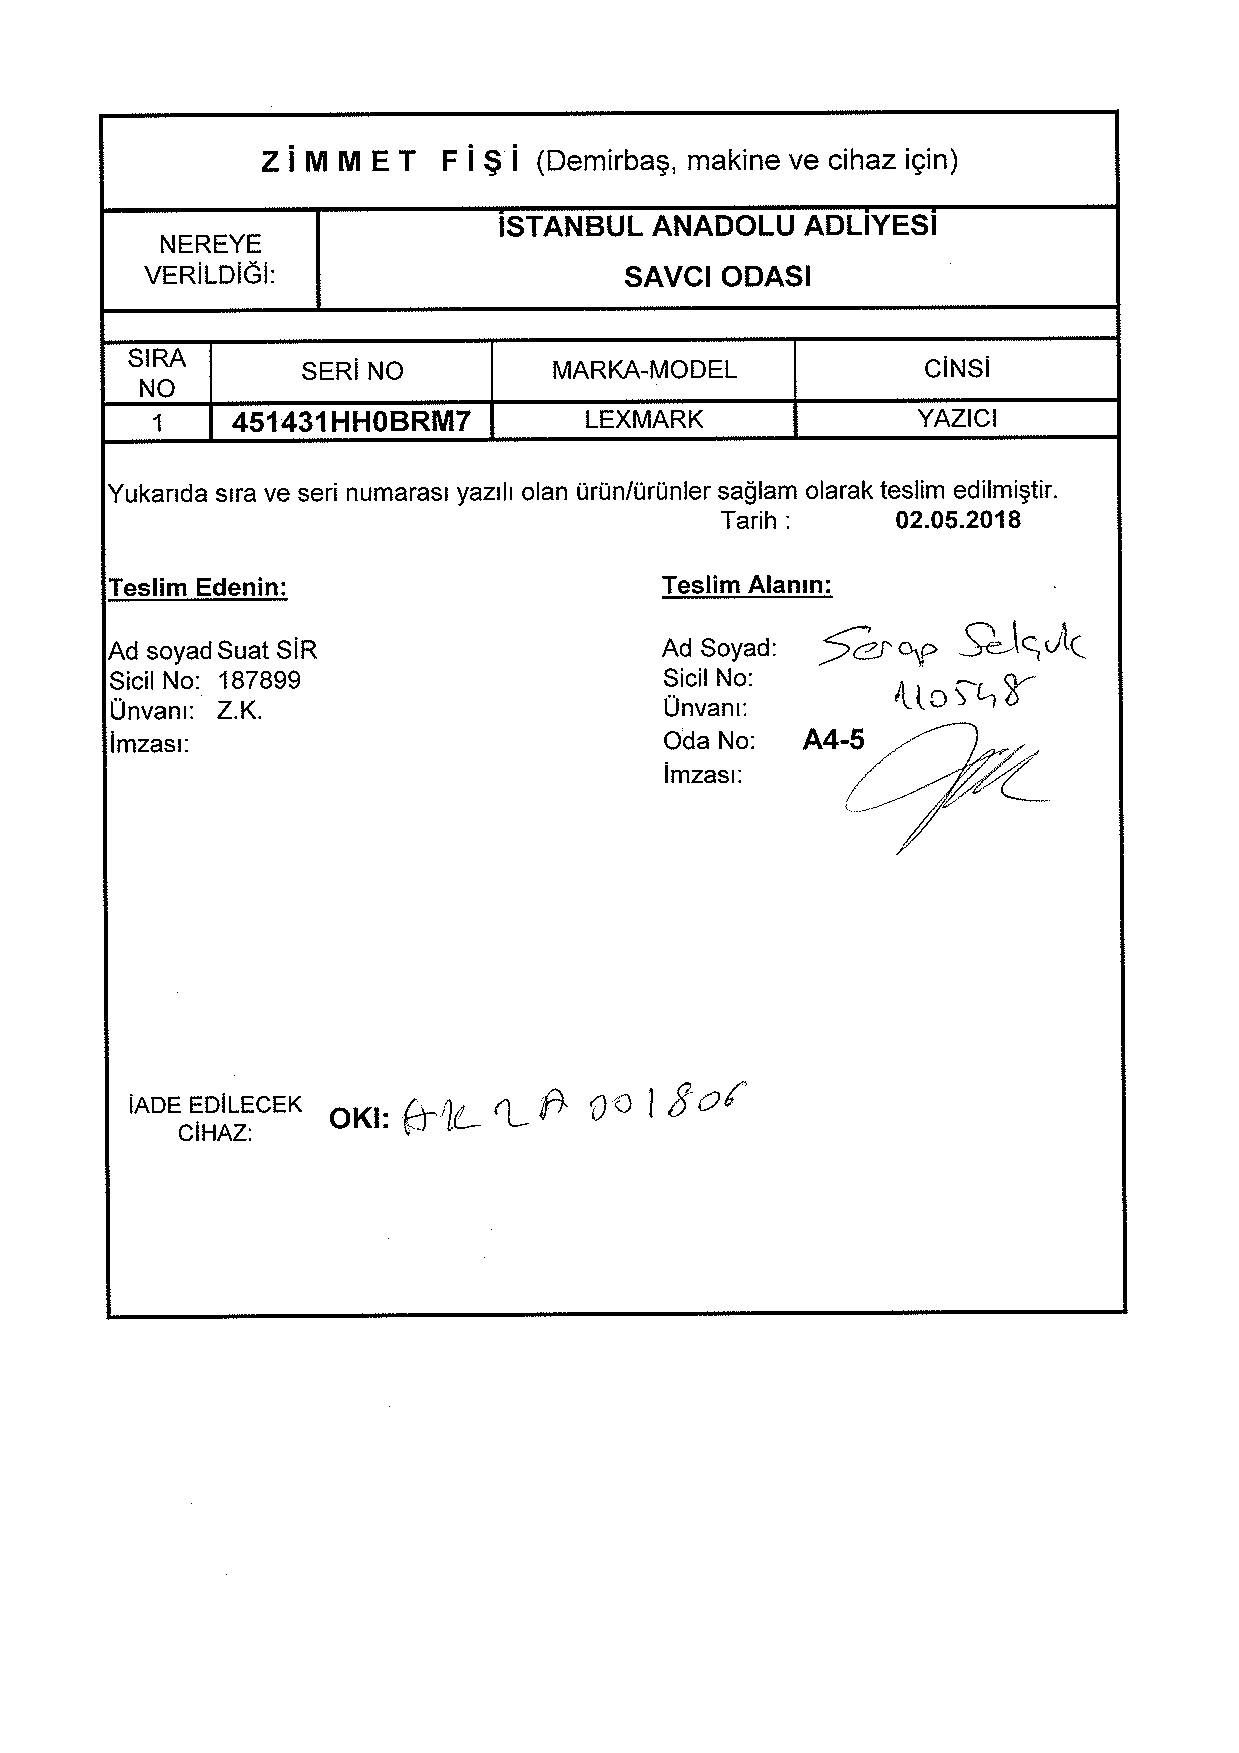 ZİMMET FİŞİ (Demirbaş, makine ve cihaz için)
NEREYE VERİLDİĞİ:
İSTANBUL ANADOLU ADLİYESİ
SAVCI ODASI
SIRA NO SERİ NO MARKA-MODEL CİNSİ
1 451431HH0BRM7 LEXMARK YAZICI
Yukarıda sıra ve seri numarası yazılı olan ürün/ürünler sağlam olarak teslim edilmiştir.
Tarih : 02.05.2018
Teslim Edenin:
Ad soyad Suat SİR
Sicil No: 187899
Ünvanı: Z.K.
İmzası:
Teslim Alanın:
Ad Soyad: Serap Selçuk
Sicil No: 110548
Ünvanı:
Oda No: A4-5
İmzası:
İADE EDİLECEK CİHAZ:
OKI: AK2A001806